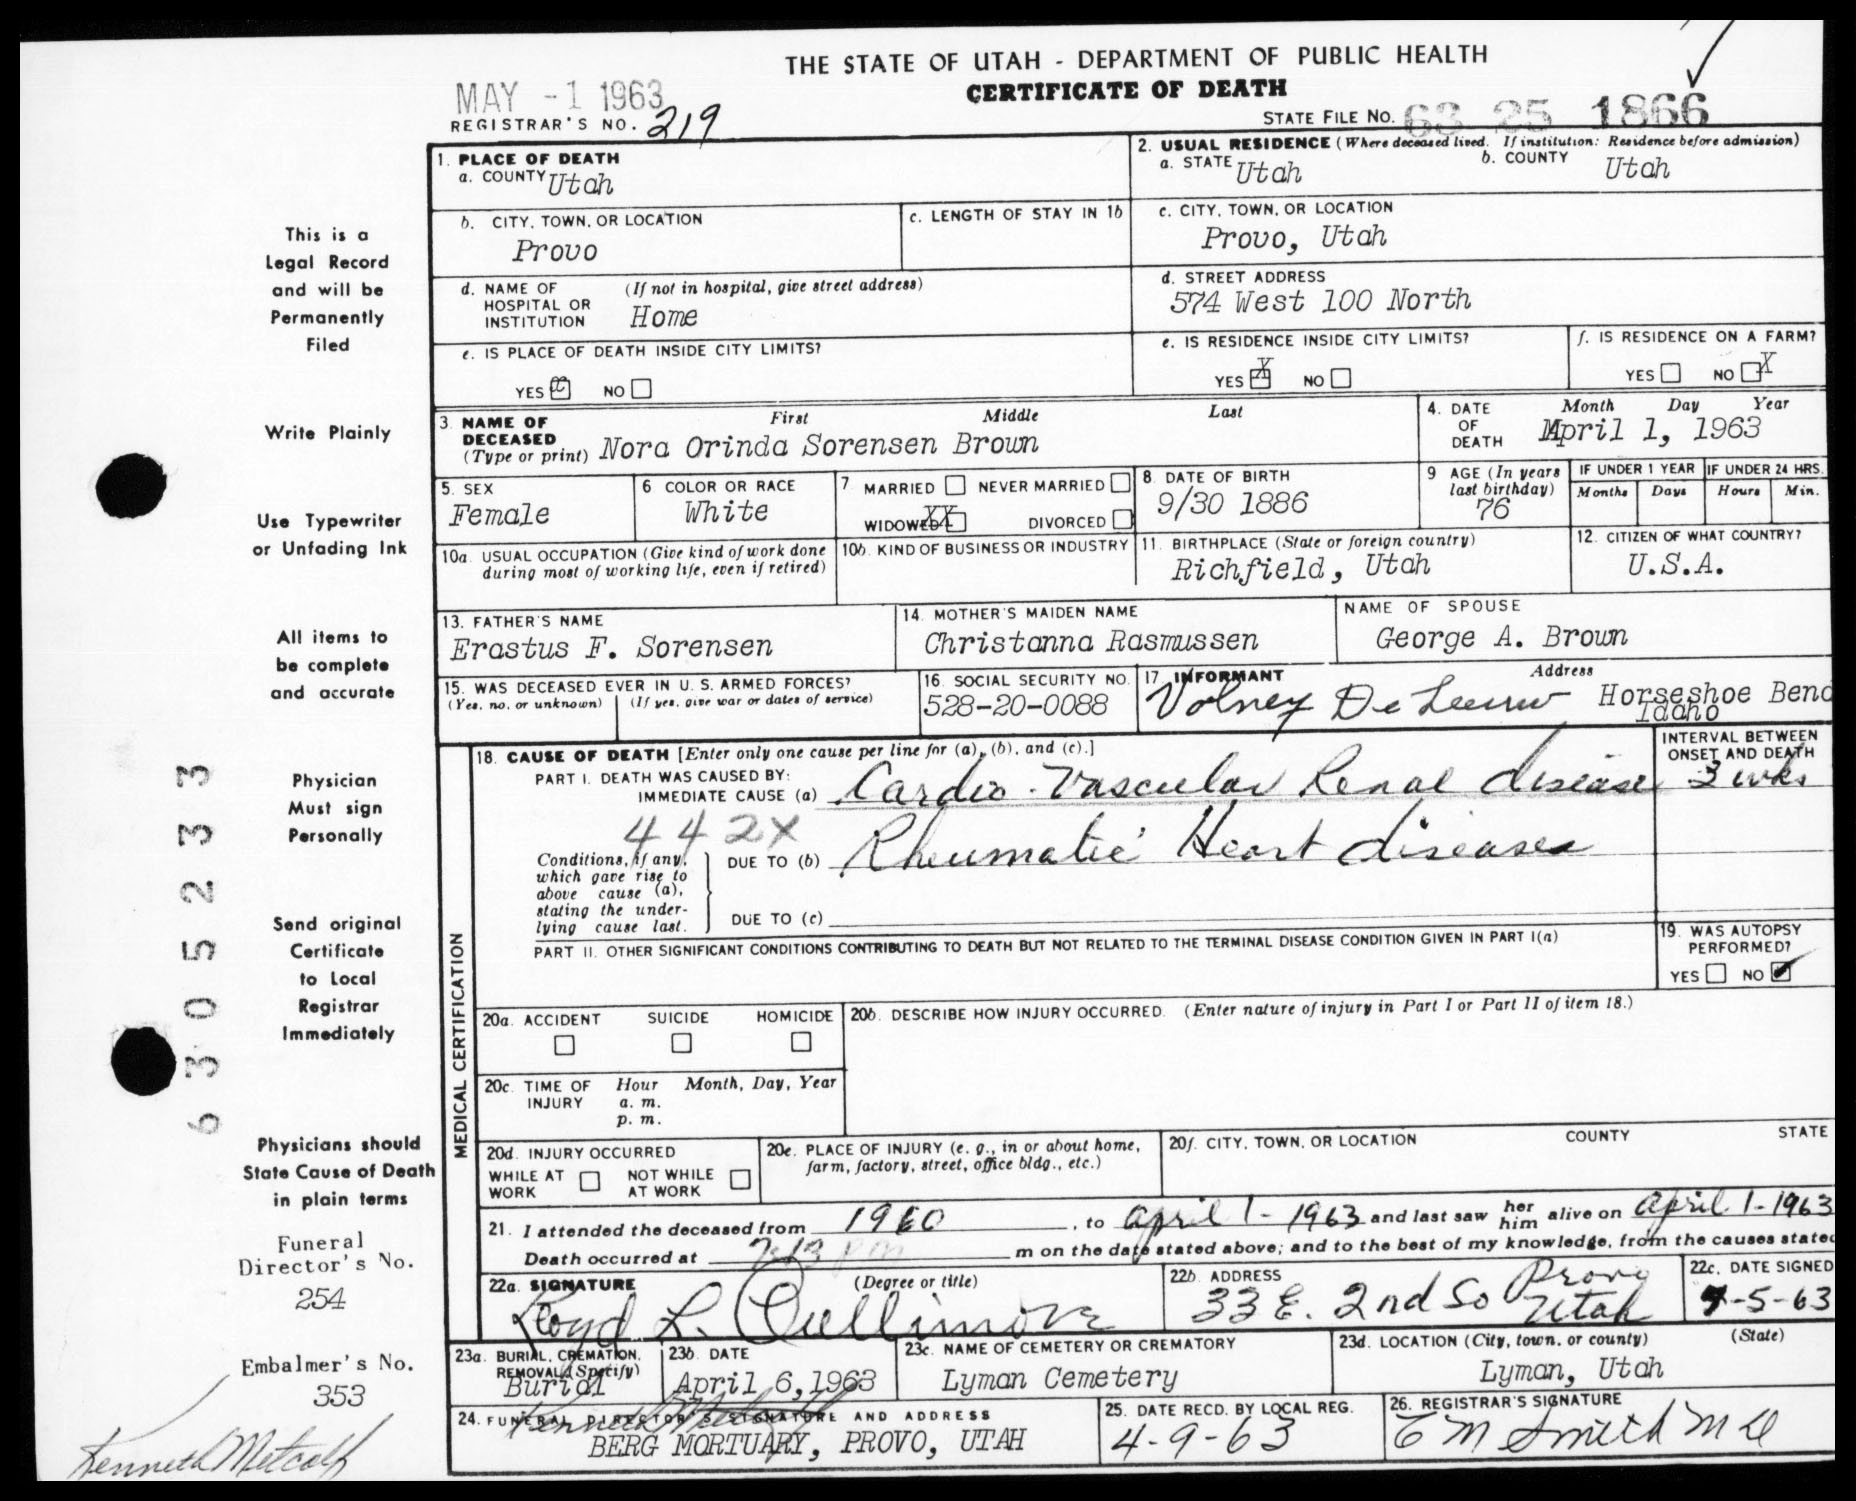 THE STATE OF UTAH - DEPARTMENT OF PUBLIC HEALTH
CERTIFICATE OF DEATH
MAY -1 1963
REGISTRAR'S NO. 219
STATE FILE NO. 63 25 1866
1. PLACE OF DEATH
a. COUNTY Utah
2. USUAL RESIDENCE (Where deceased lived. If institution: Residence before admission)
a. STATE Utah b. COUNTY Utah
b. CITY, TOWN, OR LOCATION
Provo
c. LENGTH OF STAY IN 1b
c. CITY, TOWN, OR LOCATION
Provo, Utah
d. NAME OF HOSPITAL OR INSTITUTION (If not in hospital, give street address)
Home
d. STREET ADDRESS
574 West 100 North
e. IS PLACE OF DEATH INSIDE CITY LIMITS?
YES X NO
e. IS RESIDENCE INSIDE CITY LIMITS?
YES X NO
f. IS RESIDENCE ON A FARM?
YES NO X
3. NAME OF DECEASED (Type or print) First Middle Last
Nora Orinda Sorensen Brown
4. DATE OF DEATH Month Day Year
April 1, 1963
5. SEX
Female
6 COLOR OR RACE
White
7. MARRIED NEVER MARRIED
WIDOWED XX DIVORCED
8. DATE OF BIRTH
9/30 1886
9 AGE (In years last birthday)
76
IF UNDER 1 YEAR
Months Days
IF UNDER 24 HRS.
Hours Min.
10a. USUAL OCCUPATION (Give kind of work done during most of working life, even if retired)
10b. KIND OF BUSINESS OR INDUSTRY
11. BIRTHPLACE (State or foreign country)
Richfield, Utah
12. CITIZEN OF WHAT COUNTRY?
U.S.A.
13. FATHER'S NAME
Erastus F. Sorensen
14. MOTHER'S MAIDEN NAME
Christanna Rasmussen
NAME OF SPOUSE
George A. Brown
15. WAS DECEASED EVER IN U. S. ARMED FORCES?
(Yes, no, or unknown) (If yes, give war or dates of service)
16. SOCIAL SECURITY NO.
528-20-0088
17. INFORMANT Address
Volney De Leeuw Horseshoe Bend
Idaho
MEDICAL CERTIFICATION
18. CAUSE OF DEATH [Enter only one cause per line for (a), (b), and (c).]
PART I. DEATH WAS CAUSED BY:
IMMEDIATE CAUSE (a) Cardio-Vascular Renal disease
INTERVAL BETWEEN ONSET AND DEATH
3 wks
442X
Conditions, if any, which gave rise to above cause (a), stating the underlying cause last.
DUE TO (b) Rheumatic Heart diseases
DUE TO (c)
PART II. OTHER SIGNIFICANT CONDITIONS CONTRIBUTING TO DEATH BUT NOT RELATED TO THE TERMINAL DISEASE CONDITION GIVEN IN PART I(a)
19. WAS AUTOPSY PERFORMED?
YES NO ✓
20a. ACCIDENT SUICIDE HOMICIDE
20b. DESCRIBE HOW INJURY OCCURRED. (Enter nature of injury in Part I or Part II of item 18.)
20c. TIME OF INJURY Hour Month, Day, Year
a. m.
p. m.
20d. INJURY OCCURRED
WHILE AT WORK NOT WHILE AT WORK
20e. PLACE OF INJURY (e. g., in or about home, farm, factory, street, office bldg., etc.)
20f. CITY, TOWN, OR LOCATION COUNTY STATE
21. I attended the deceased from 1960, to April 1-1963 and last saw her him alive on April 1-1963
Death occurred at 7:13 pm m on the date stated above; and to the best of my knowledge, from the causes stated
22a. SIGNATURE (Degree or title)
Lloyd L. Cullimore
22b. ADDRESS
33 E. 2nd So Provo
Utah
22c. DATE SIGNED
4-5-63
23a. BURIAL, CREMATION, REMOVAL (Specify)
Burial
23b. DATE
April 6, 1963
23c. NAME OF CEMETERY OR CREMATORY
Lyman Cemetery
23d. LOCATION (City, town, or county) (State)
Lyman, Utah
24. FUNERAL DIRECTOR'S SIGNATURE AND ADDRESS
Kenneth Metcalf
BERG MORTUARY, PROVO, UTAH
25. DATE RECD. BY LOCAL REG.
4-9-63
26. REGISTRAR'S SIGNATURE
E M Smith M D
This is a
Legal Record
and will be
Permanently
Filed
Write Plainly
Use Typewriter
or Unfading Ink
All items to
be complete
and accurate
Physician
Must sign
Personally
Send original
Certificate
to Local
Registrar
Immediately
Physicians should
State Cause of Death
in plain terms
Funeral
Director's No.
254
Embalmer's No.
353
Kenneth Metcalf
6 3 0 5 2 3 3